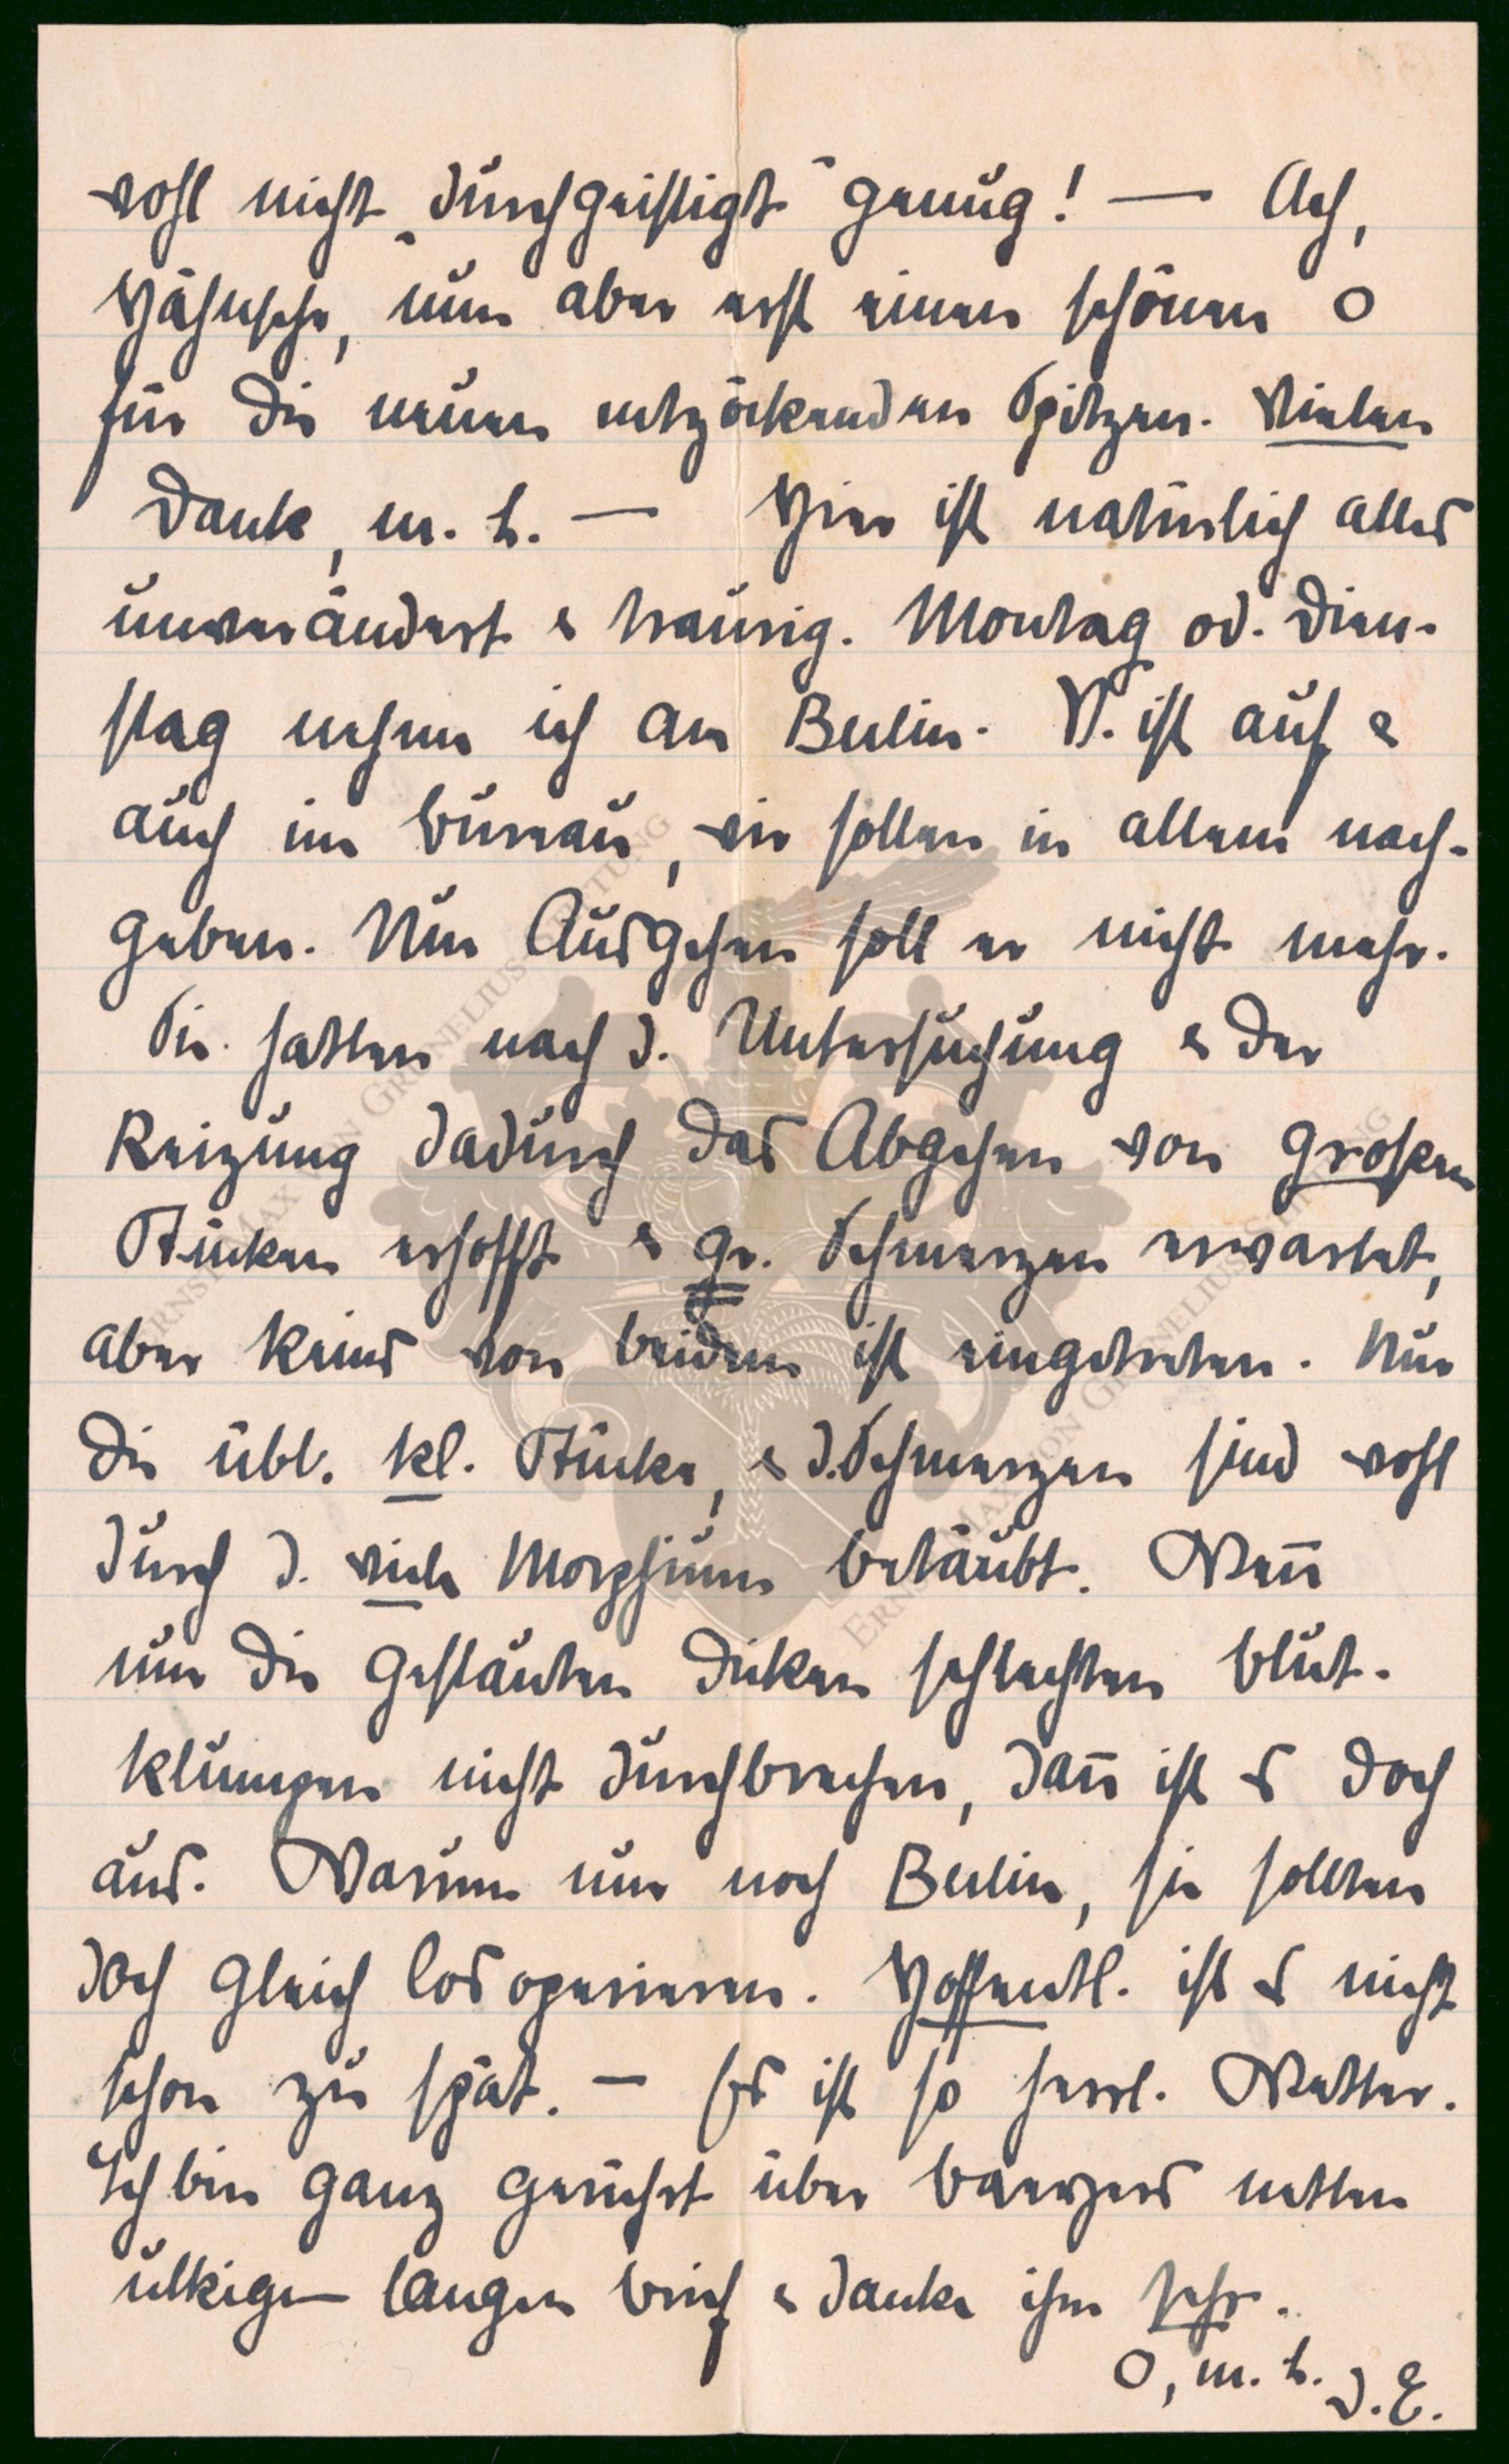 wohl nicht „durchgeistigt“ genug! — Ach,
Hähnsche, nun aber erst einen schönen O
für die neuen entzückenden Spitzen. Vielen
Dank, m. L. — Hier ist natürlich alles
unverändert & traurig. Montag od. Dien-
stag nehme ich an Berlin. V. ist auf &
auch im Bureau, wir sollen in allem nach-
geben. Nur Ausgehen soll er nicht mehr.
Sie hatten nach d. Untersuchung & der
Reizung dadurch das Abgehen von großen
Stücken erhofft & gr. Schmerzen erwartet,
aber keins von beiden ist eingetreten. Nur
die übl. kl. Stücke, & d. Schmerzen sind wohl
durch d. viele Morphium betäubt. Wenn̄
nun die gestauten dicken schlechten Blut-
klumpen nicht durchbrechen, dan̄ ist es doch
aus. Warum nun noch Berlin, sie sollten
doch gleich los operieren. Hoffentl. ist es nicht
schon zu spät. — Es ist so herrl. Wetter.
Ich bin ganz gerührt über netten
ulkigen langen Brief & danke ihm sehr.
O, m. L. D. E.
ERNST MAX VON GRUNELIUS-STIFTUNG
ERNST MAX VON GRUNELIUS-STIFTUNG